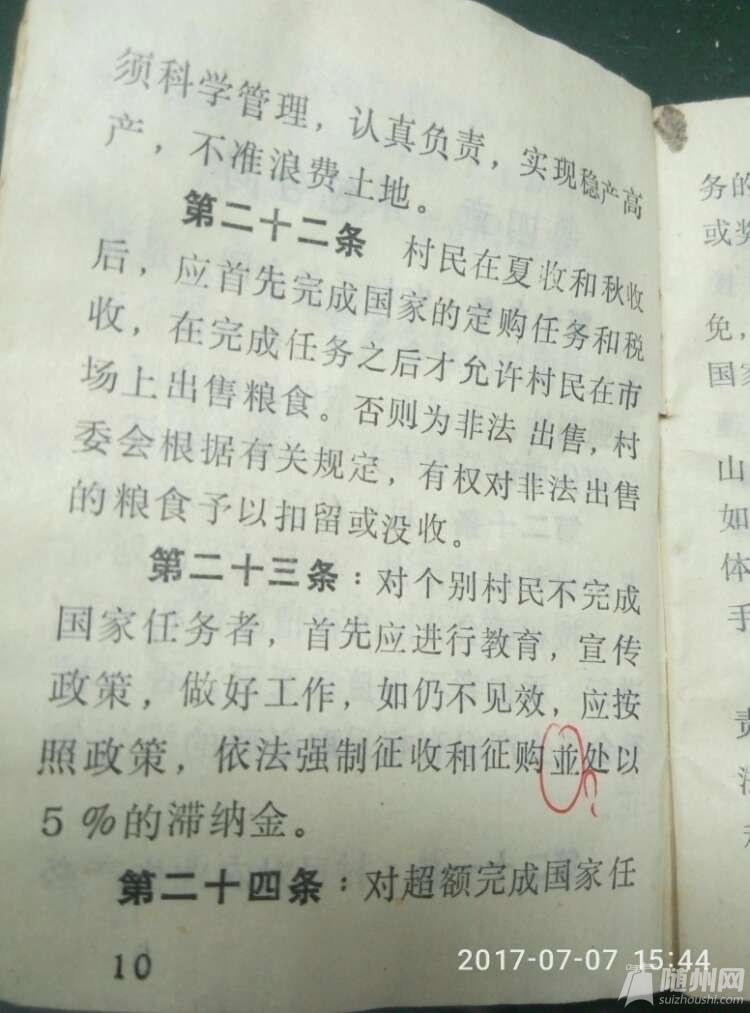 须科学管理，认真负责，实现稳产高
产，不准浪费土地。
第二十二条 村民在夏收和秋收
后，应首先完成国家的定购任务和税
收，在完成任务之后才允许村民在市
场上出售粮食。否则为非法 出售，村
委会根据有关规定，有权对非法出售
的粮食予以扣留或没收。
第二十三条：对个别村民不完成
国家任务者，首先应进行教育，宣传
政策，做好工作，如仍不见效，应按
照政策，依法强制征收和征购並处以
5％的滞纳金。
第二十四条：对超额完成国家任
10
务的
或奖
免，
国家
山
如
体
手
责
2017-07-07 15:44
随州网
suizhoushi.com